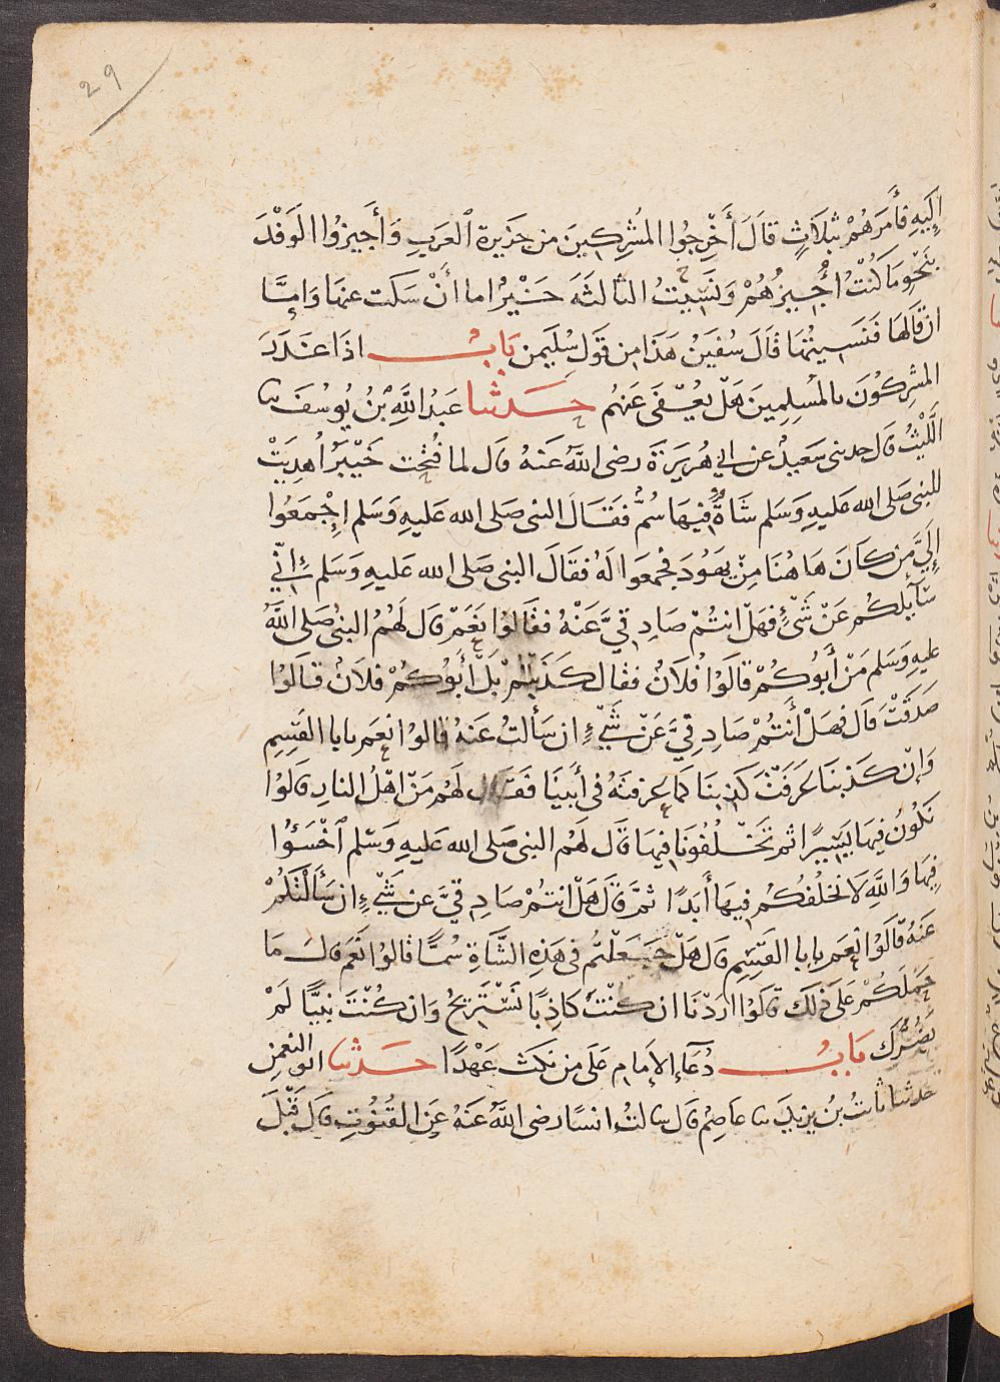 29
إِلَيهِ فأَمَرَهُمْ بثلَاثٍ قالَ أَخْرِجُوا المُشرِكينَ من جَزيرة العَربِ وَأَجيزوُا الوَفْدَ
بنَحْوِ مَا كُنْتُ أُجيزهُمْ وَنَسِيتُ الثالثةَ خَيْرٌ اما أَنْ سَكت عنهَا وَامَّا
ان قَالهَا فَنَسيتُهَا قَالَ سُفينُ هَذا من قَول سُليمن بَابٌ اذا غَدَرَ
المشركُونَ بالمُسلِمِينَ هَلْ يُعْفَى عَنهُم حَدثنا عَبدُ اللَّهِ بْنُ يُوسُفَ نا
اللَّيثُ قال حدثنى سَعيدٌ عن ابي هُرَيرَةَ رضى اللَّه عَنهُ قال لما فُتحت خَيْبَرُ اُهدِيَتْ
للنبى صَلى الله عَليهِ وَسَلم شَاةٌ فيهَا سُمٌّ فقَالَ النبى صَلى الله عَليهِ وَسَلم اِجْمَعُوا
إِلَيَّ مَن كَانَ هَاهُنَا مِنْ يَهُودَ فجُمعوَا لَهُ فقَالَ النبى صَلى الله عَليهِ وَسَلم إِنّي
سَآيلكُم عَنْ شَيْءٍ فهَلْ انتُمْ صَادِقيَّ عَنْهُ فقَالوُا نعَمْ قال لَهُمُ النبىُ صَلى اللَّهُ
عليهِ وَسَلم مَنْ أَبُوكُمْ قالَوُا فُلَانٌ فقال كَذَبْتُمْ بَلْ أَبُوُكُمْ فلَانٌ قالَوُا
صَدَقْتَ قال فهَلْ أَنتُمْ صَادِقيَّ عَنْ شَيْءٍ ان سَألتُ عَنهُ قالوُا نعَم يابا القسِمِ
وَإنْ كَذبنَا عَرَفتَ كَذِبنَا كمَا عَرفتَهُ فى أَبينَا فقَال لَهُم مَنْ اهْلُ النارِ قالوُا
نكُونُ فيهَا يَسِيرًا ثم تَخْلُفُونَا فيهَا قَال لَهُم النبى صَلى الله عَليهِ وَسَلم اخْسَئوُا
فِيهَا وَاللَّهِ لَا نخلُفكُم فيهَا أَبَدًا ثمَّ قَالَ هَلْ انتُمْ صَادِقيَّ عن شَيْءٍ ان سَأَلْتكُمْ
عَنهُ قالوُا نعَم يابا القَسِمِ قال هَلْ جَعَلْتُم فى هَذِهِ الشَّاةِ سُمًّا قالوُا نَعَم قال مَا
حَمَلكُمْ عَلَى ذلكَ قالوُا اَرَدْنَا ان كُنْتَ كاذِبًا نَسْتَرِيحُ وَان كُنْتَ نبيًّا لَمْ
يَضُرَّك بَابُ دُعَآءِ الإِمَام عَلَى مَن نكَثَ عَهْدًا حَدثنا ابو النعمٰن
حدثنا ثابتُ بنُ يزيدَ نا عاصِمٌ قال سَالتُ انسًا رضى اللَّهُ عَنهُ عَن القنُوُتِ قال قَبْلَ